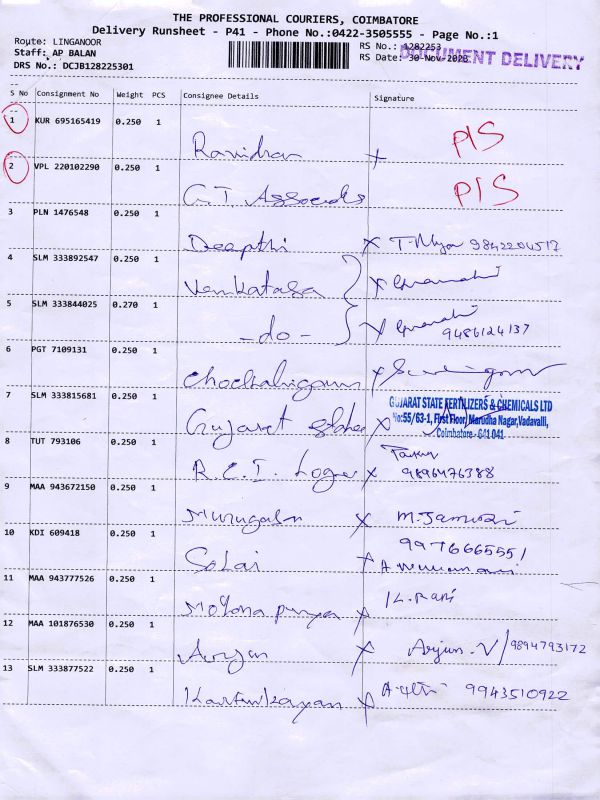 THE PROFESSIONAL COURIERS, COIMBATORE
Delivery Runsheet - P41 - Phone No.:0422-3505555 - Page No.:1
Route: LINGANOOR
Staff: AP BALAN
DRS No.: DCJB128225301
RS No.: 1282253
RS Date: 30-Nov-2023
DOCUMENT DELIVERY
S No Consignment No Weight PCS Consignee Details Signature
1 KUR 695165419 0.250 1
Ravindran PIS
2 VPL 220102290 0.250 1
G.T. Associates PIS
3 PLN 1476548 0.250 1
Deepthi 9842204517
4 SLM 333892547 0.250 1
Venkatasa
5 SLM 333844025 0.270 1
- do - 9486124137
6 PGT 7109131 0.250 1
Chockalingam
7 SLM 333815681 0.250 1
Gujarat State
GUJARAT STATE FERTILIZERS & CHEMICALS LTD
No:55/63-1, First Floor, Marudha Nagar, Vadavalli,
Coimbatore - 641 041
8 TUT 793106 0.250 1
R.C.I. 9896476388
9 MAA 943672150 0.250 1
Murugan
10 KDI 609418 0.250 1
9976665551
Solai
11 MAA 943777526 0.250 1
K. Rani
12 MAA 101876530 0.250 1
Arjun Arjun.V/9894793172
13 SLM 333877522 0.250 1
Karthikayan 9943510922